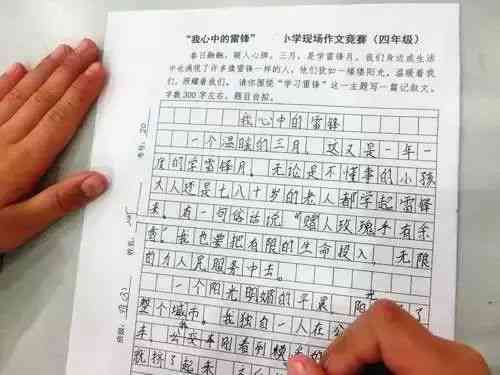 “我心中的雷锋” 小学现场作文竞赛（四年级）
春日融融，暖人心脾，三月，是学雷锋月。我们身边或生活
中也涌现了许多像雷锋一样的人，他们犹如一缕缕阳光，温暖着我
们，照耀着我们。请你围绕“学习雷锋”这一主题写一篇记叙文。
字数300字左右，题目自拟。
我心中的雷锋
一个温暖的三月！这又是一年一
度的学雷锋月。无论是不懂事的小孩
大人还是七八十岁的老人都学起雷锋
来。有一句俗话说：“赠人玫瑰手有余
香”我也要把有限的生命投入！无限
的为人民服务中去。
一个阳光明媚的早晨！阳光 了
整个城市。我独自一人在公
车 公交车刚看到
就挤了起来
考号：20
姓名：
班级：